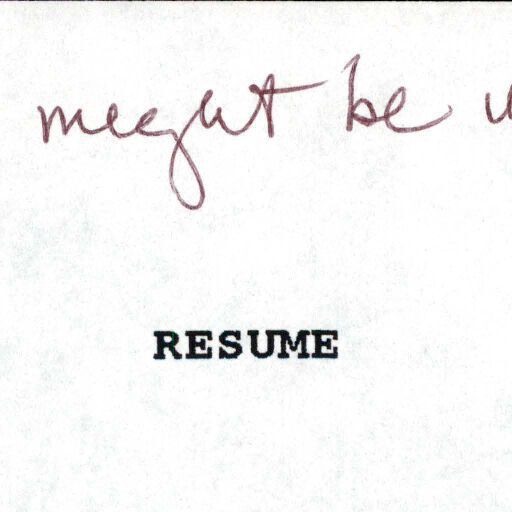 might be
RESUME